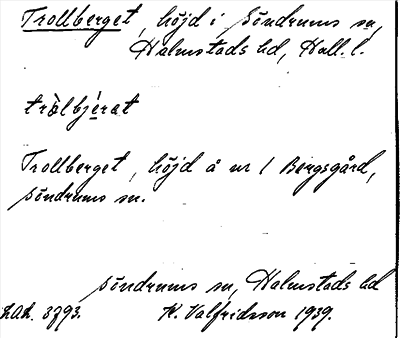 Trollberget, höjd i Söndrums sn,
Halmstads hd, Hall. l.
trɔ̀lbjèrət
Trollberget, höjd å nr 1 Bergsgård,
Söndrums sn.
Söndrums sn, Halmstads hd
K. Valfridsson 1939.